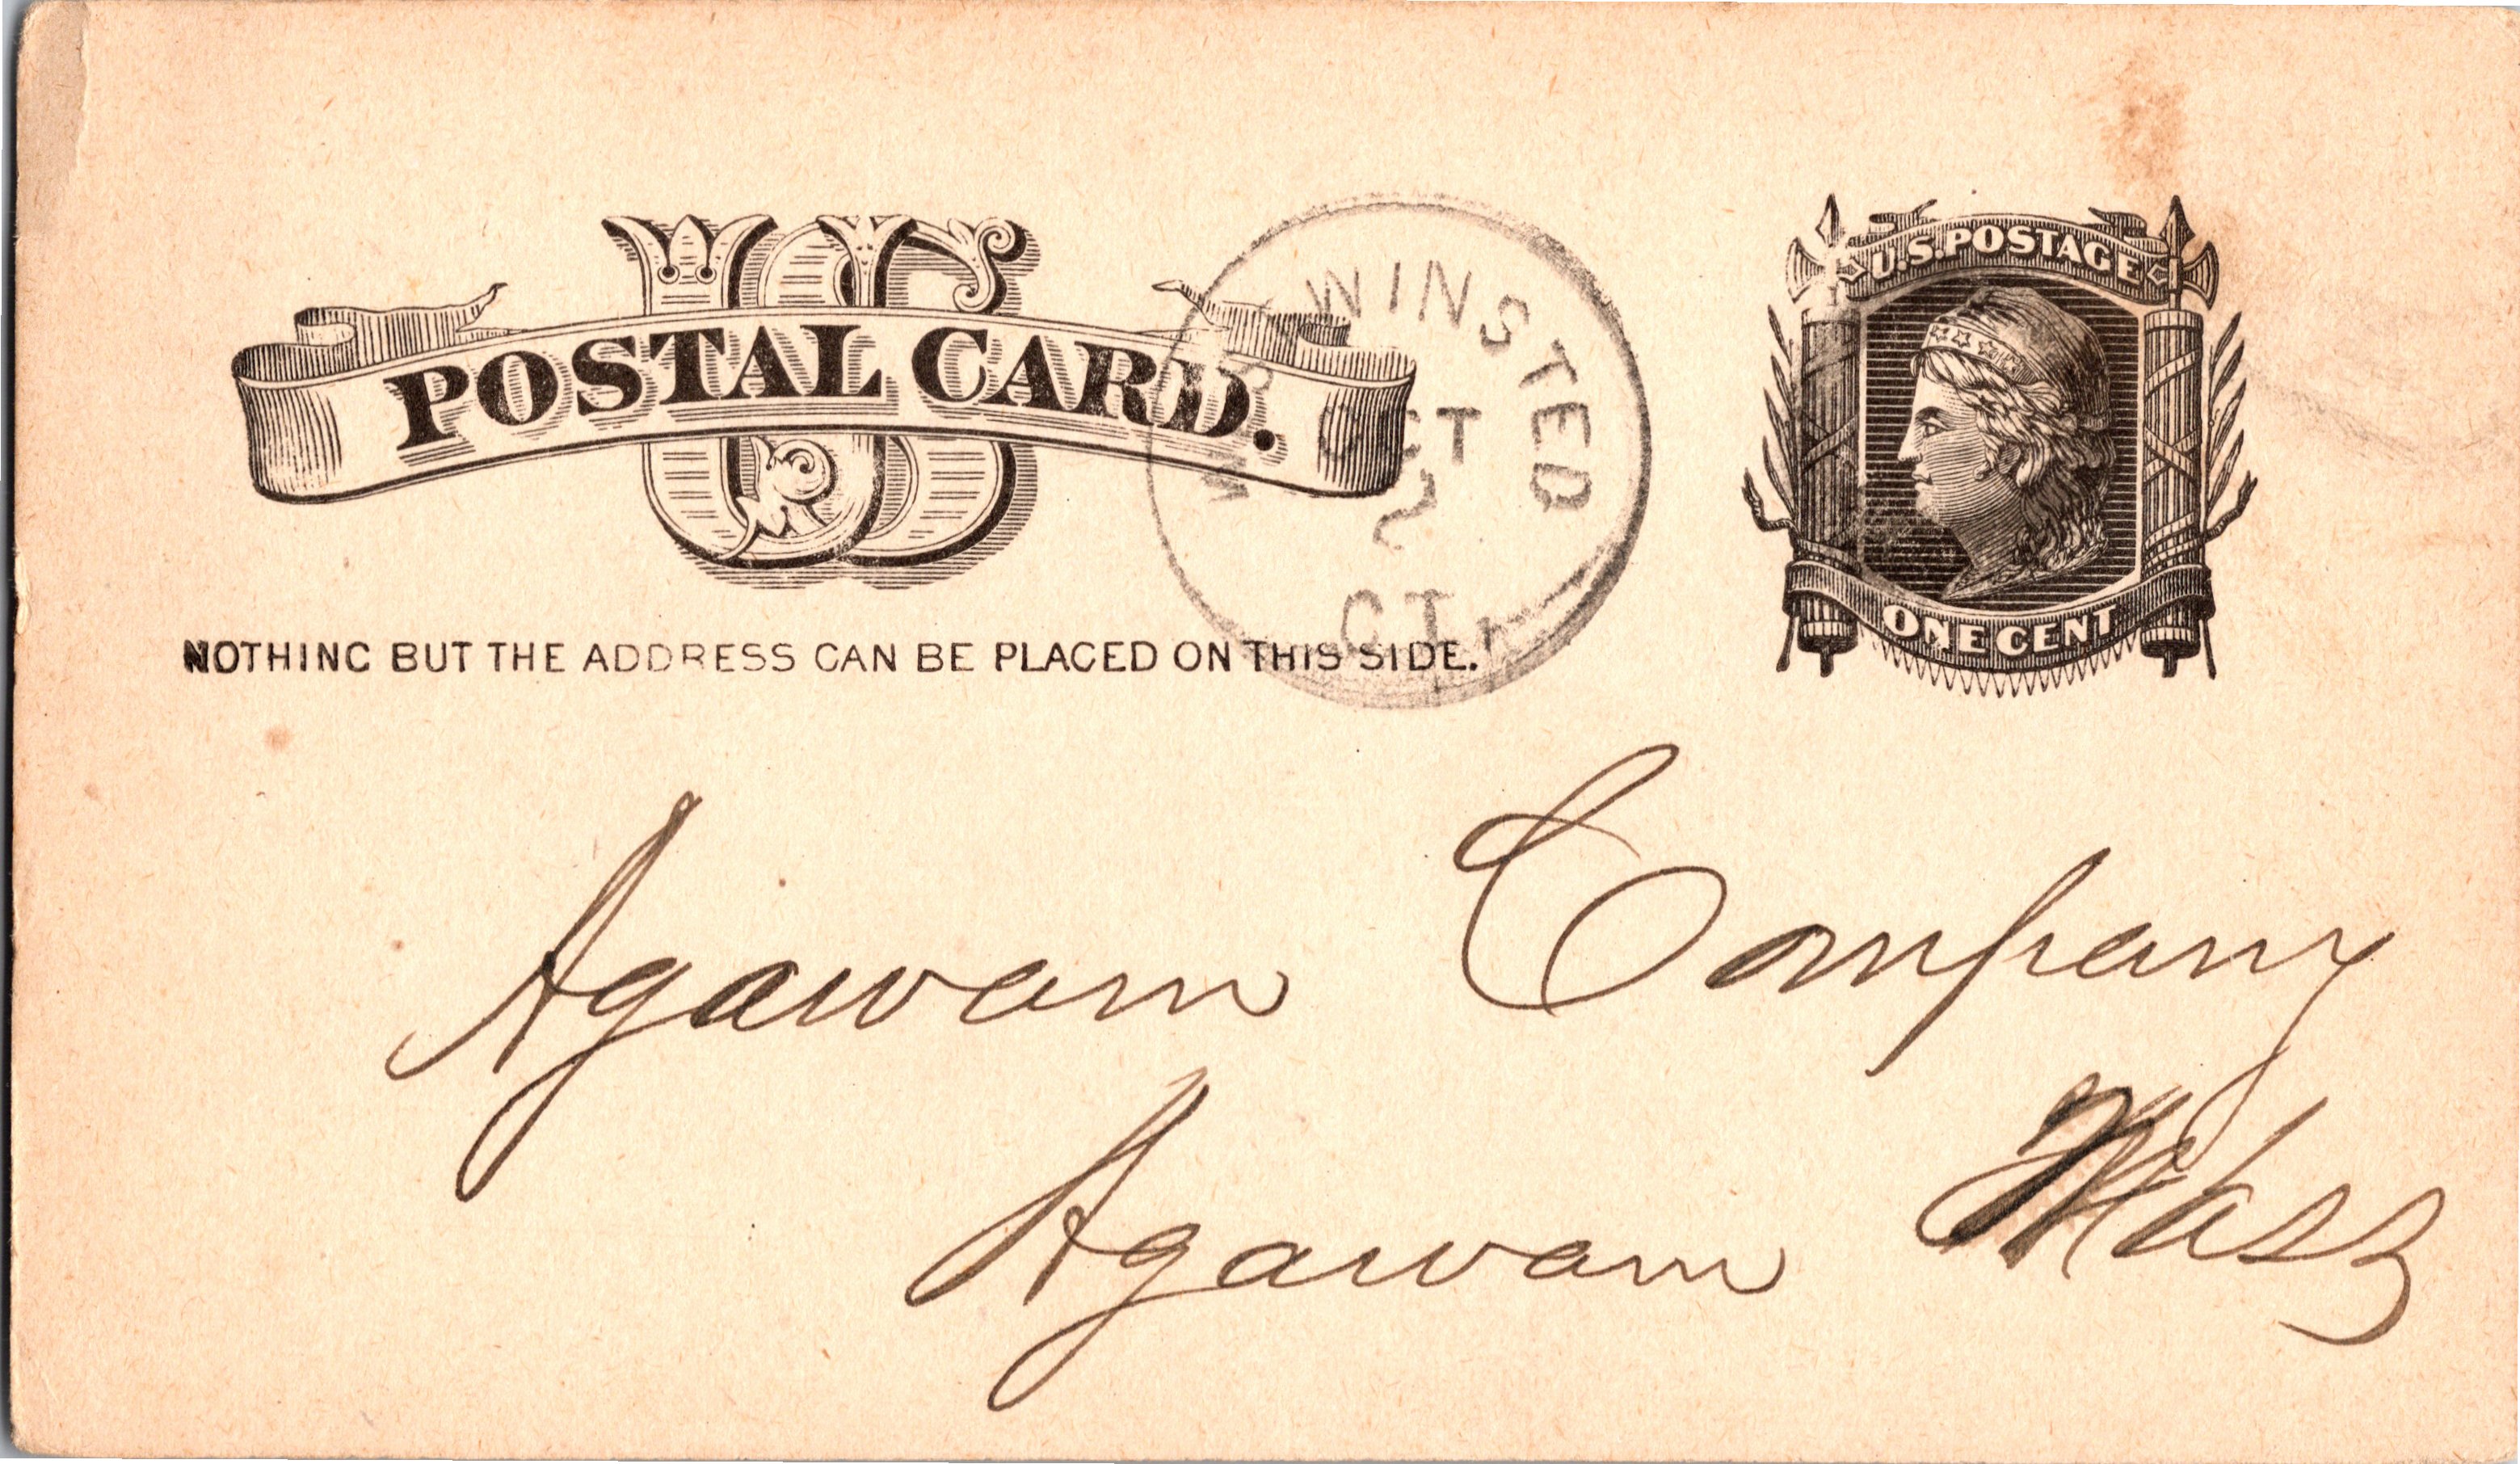 U.S. POSTAGE
US
POSTAL CARD.
WEST WINSTED
OCT
2
CT.
ONE CENT
NOTHING BUT THE ADDRESS CAN BE PLACED ON THIS SIDE.
Agawam Company
Agawam Mass